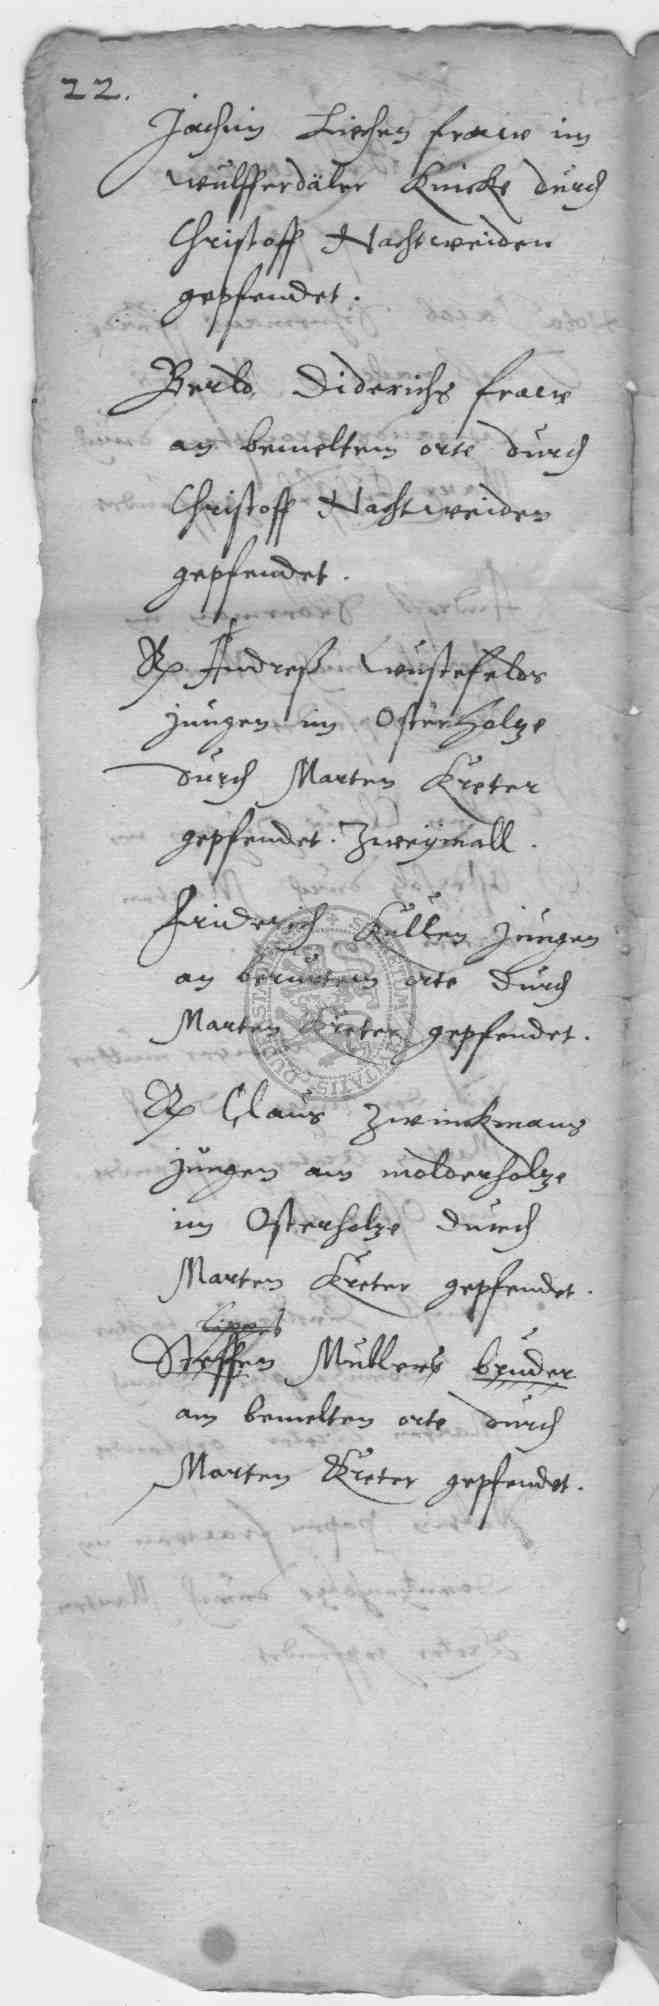 22.
Jochim Liechen frawe im
Wülfferdäler Knicke durch
Christoff Nachtweiden
gepfendet.
Berld Diderichs frawe
an bemeltem orte durch
Christoff Nachtweiden
gepfendet.
Andreß Wüstefelds
jungen im Osterholze
durch Marten Kreter
gepfendet. Zweymall.
Friderich Küllen jungen
an berürtem orte durch
Marten Kreter gepfendet.
Claus Zwinckmans
jungen am molderholze
im Osterholze durch
Marten Kreter gepfendet.
Steffen Müllers bruder
am bemelten orte durch
Marten Kreter gepfendet.